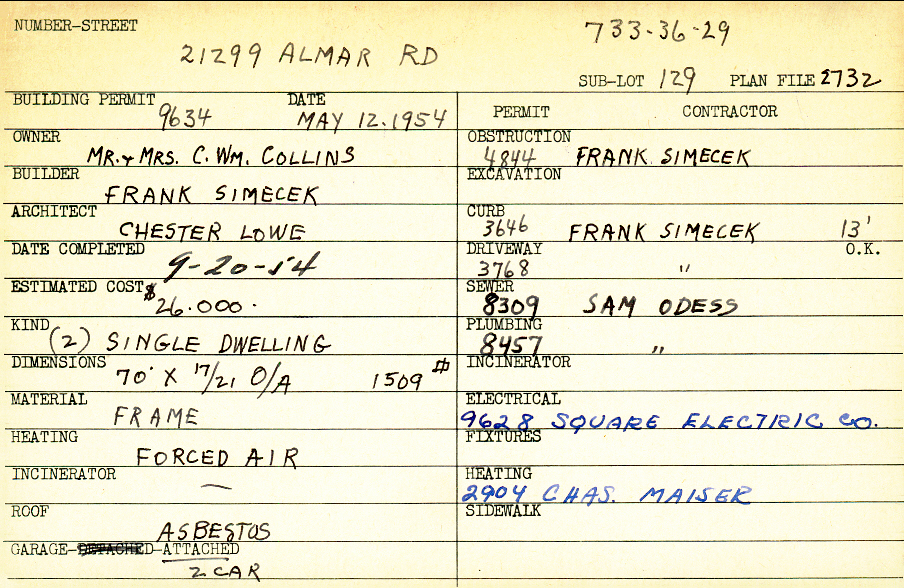 NUMBER-STREET
21299 ALMAR RD
733-36-29
SUB-LOT 129 PLAN FILE 2732
BUILDING PERMIT 9634 DATE MAY 12.1954
OWNER MR. & MRS. C. WM. COLLINS
BUILDER FRANK SIMECEK
ARCHITECT CHESTER LOWE
DATE COMPLETED 9-20-54
ESTIMATED COST $26.000.
KIND (2) SINGLE DWELLING
DIMENSIONS 70' X 17/21 O/A 1509 #
MATERIAL FRAME
HEATING FORCED AIR
INCINERATOR —
ROOF ASBESTOS
GARAGE-DETACHED-ATTACHED
2 CAR
PERMIT CONTRACTOR
OBSTRUCTION
4844 FRANK SIMECEK
EXCAVATION
CURB
3646 FRANK SIMECEK 13'
DRIVEWAY O.K.
3768 "
SEWER
8309 SAM ODESS
PLUMBING
8457 "
INCINERATOR
ELECTRICAL
9628 SQUARE ELECTRIC CO.
FIXTURES
HEATING
2904 CHAS. MAISER
SIDEWALK